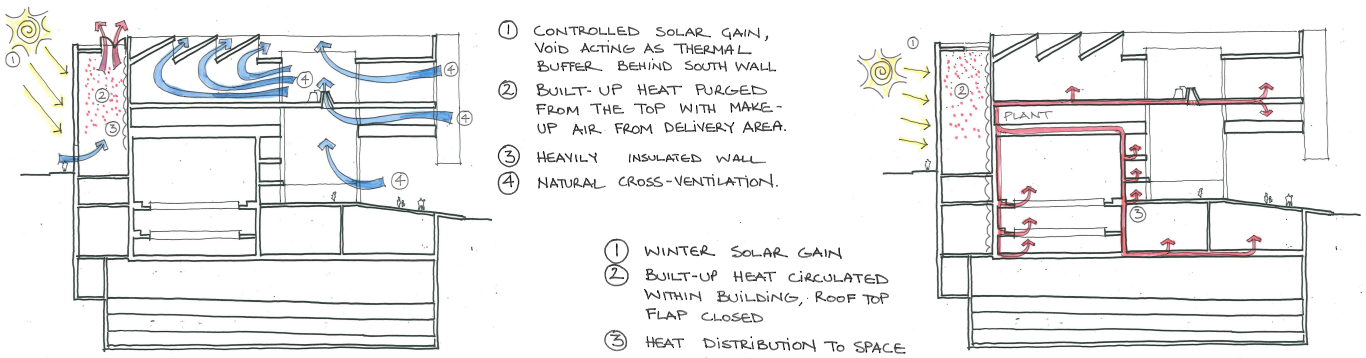 ①
②
③
④
④
④
④
① CONTROLLED SOLAR GAIN,
VOID ACTING AS THERMAL
BUFFER BEHIND SOUTH WALL
② BUILT-UP HEAT PURGED
FROM THE TOP WITH MAKE-
UP AIR FROM DELIVERY AREA.
③ HEAVILY INSULATED WALL
④ NATURAL CROSS-VENTILATION.
① WINTER SOLAR GAIN
② BUILT-UP HEAT CIRCULATED
WITHIN BUILDING, ROOF TOP
FLAP CLOSED
③ HEAT DISTRIBUTION TO SPACE
①
②
PLANT
③